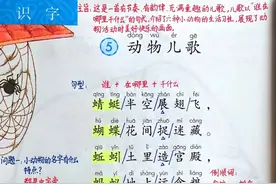 识 字
这是一首有节奏、有韵律、充满童趣的儿歌,儿歌以“谁在
哪里干什么”的句式,介绍了六种小动物的生活习性,展现了动
物活动时美好快乐的画面。
dòng wù ér gē
5 动物儿歌
句型: 谁 + 在哪里 + 干什么
qīng tíng bàn kōng zhǎn chì fēi
蜻蜓/半空/展翅飞,
hú dié huā jiān zhuō mí cáng
蝴蝶/花间/捉迷藏。
qiū yǐn tǔ lǐ zào gōng diàn
蚯蚓/土里/造宫殿,
问题一:小动物的名字有什么
特点?
倒顺词: